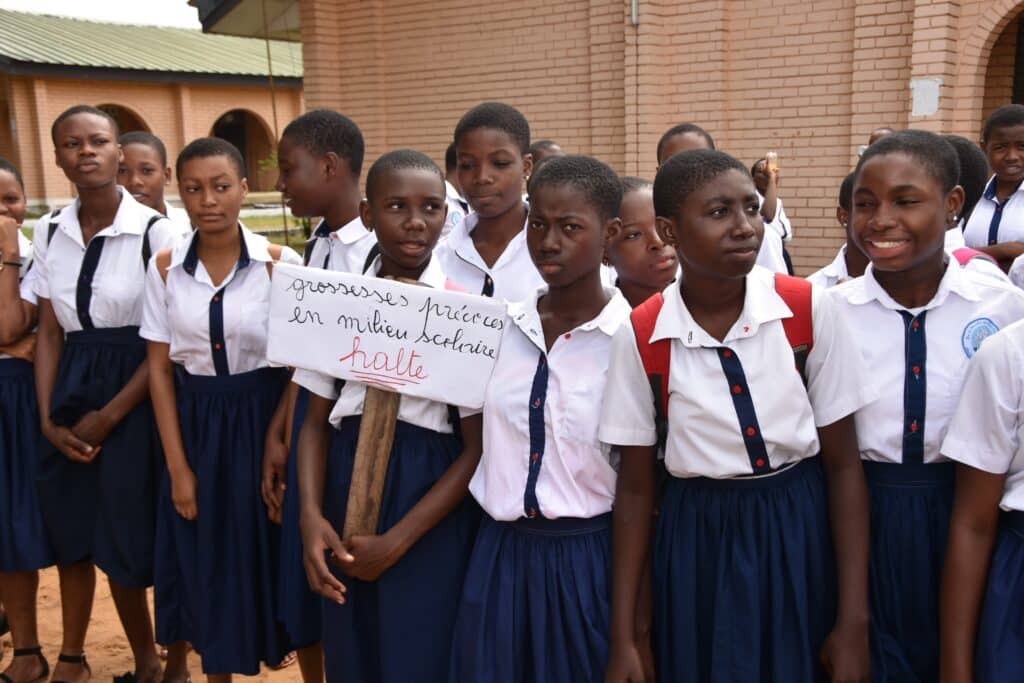 grossesses précoces
en milieu scolaire
halte